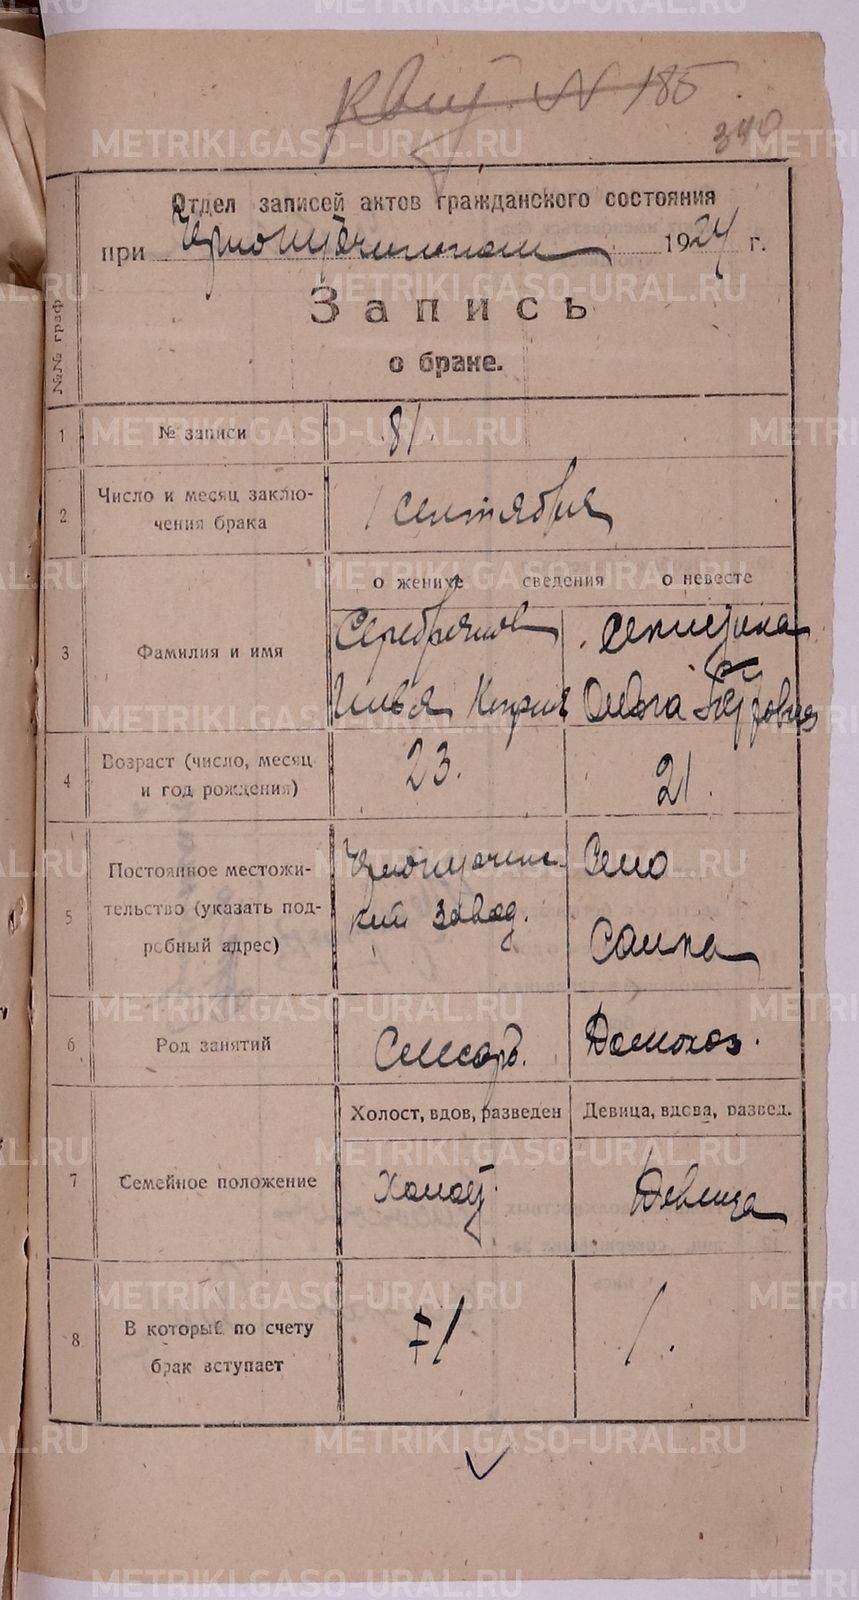 Квит № 185
340
Отдел записей актов гражданского состояния
при 1924 г.
Запись
о браке.
№№ граф
1 № записи 81.
2 Число и месяц заклю-
чения брака 1 сентября
о женихе сведения о невесте
3 Фамилия и имя
Серебряков
Илья Ольга Петровна
4 Возраст (число, месяц
и год рождения) 23. 21.
5 Постоянное местожи-
тельство (указать под-
робный адрес)
Село
кий завод.
6 Род занятий Слесарь. Домохоз.
Холост, вдов, разведен Девица, вдова, развед.
7 Семейное положение Холост. Девица
8 В который по счету
брак вступает 1 1.
METRIKI.GASO-URAL.RU